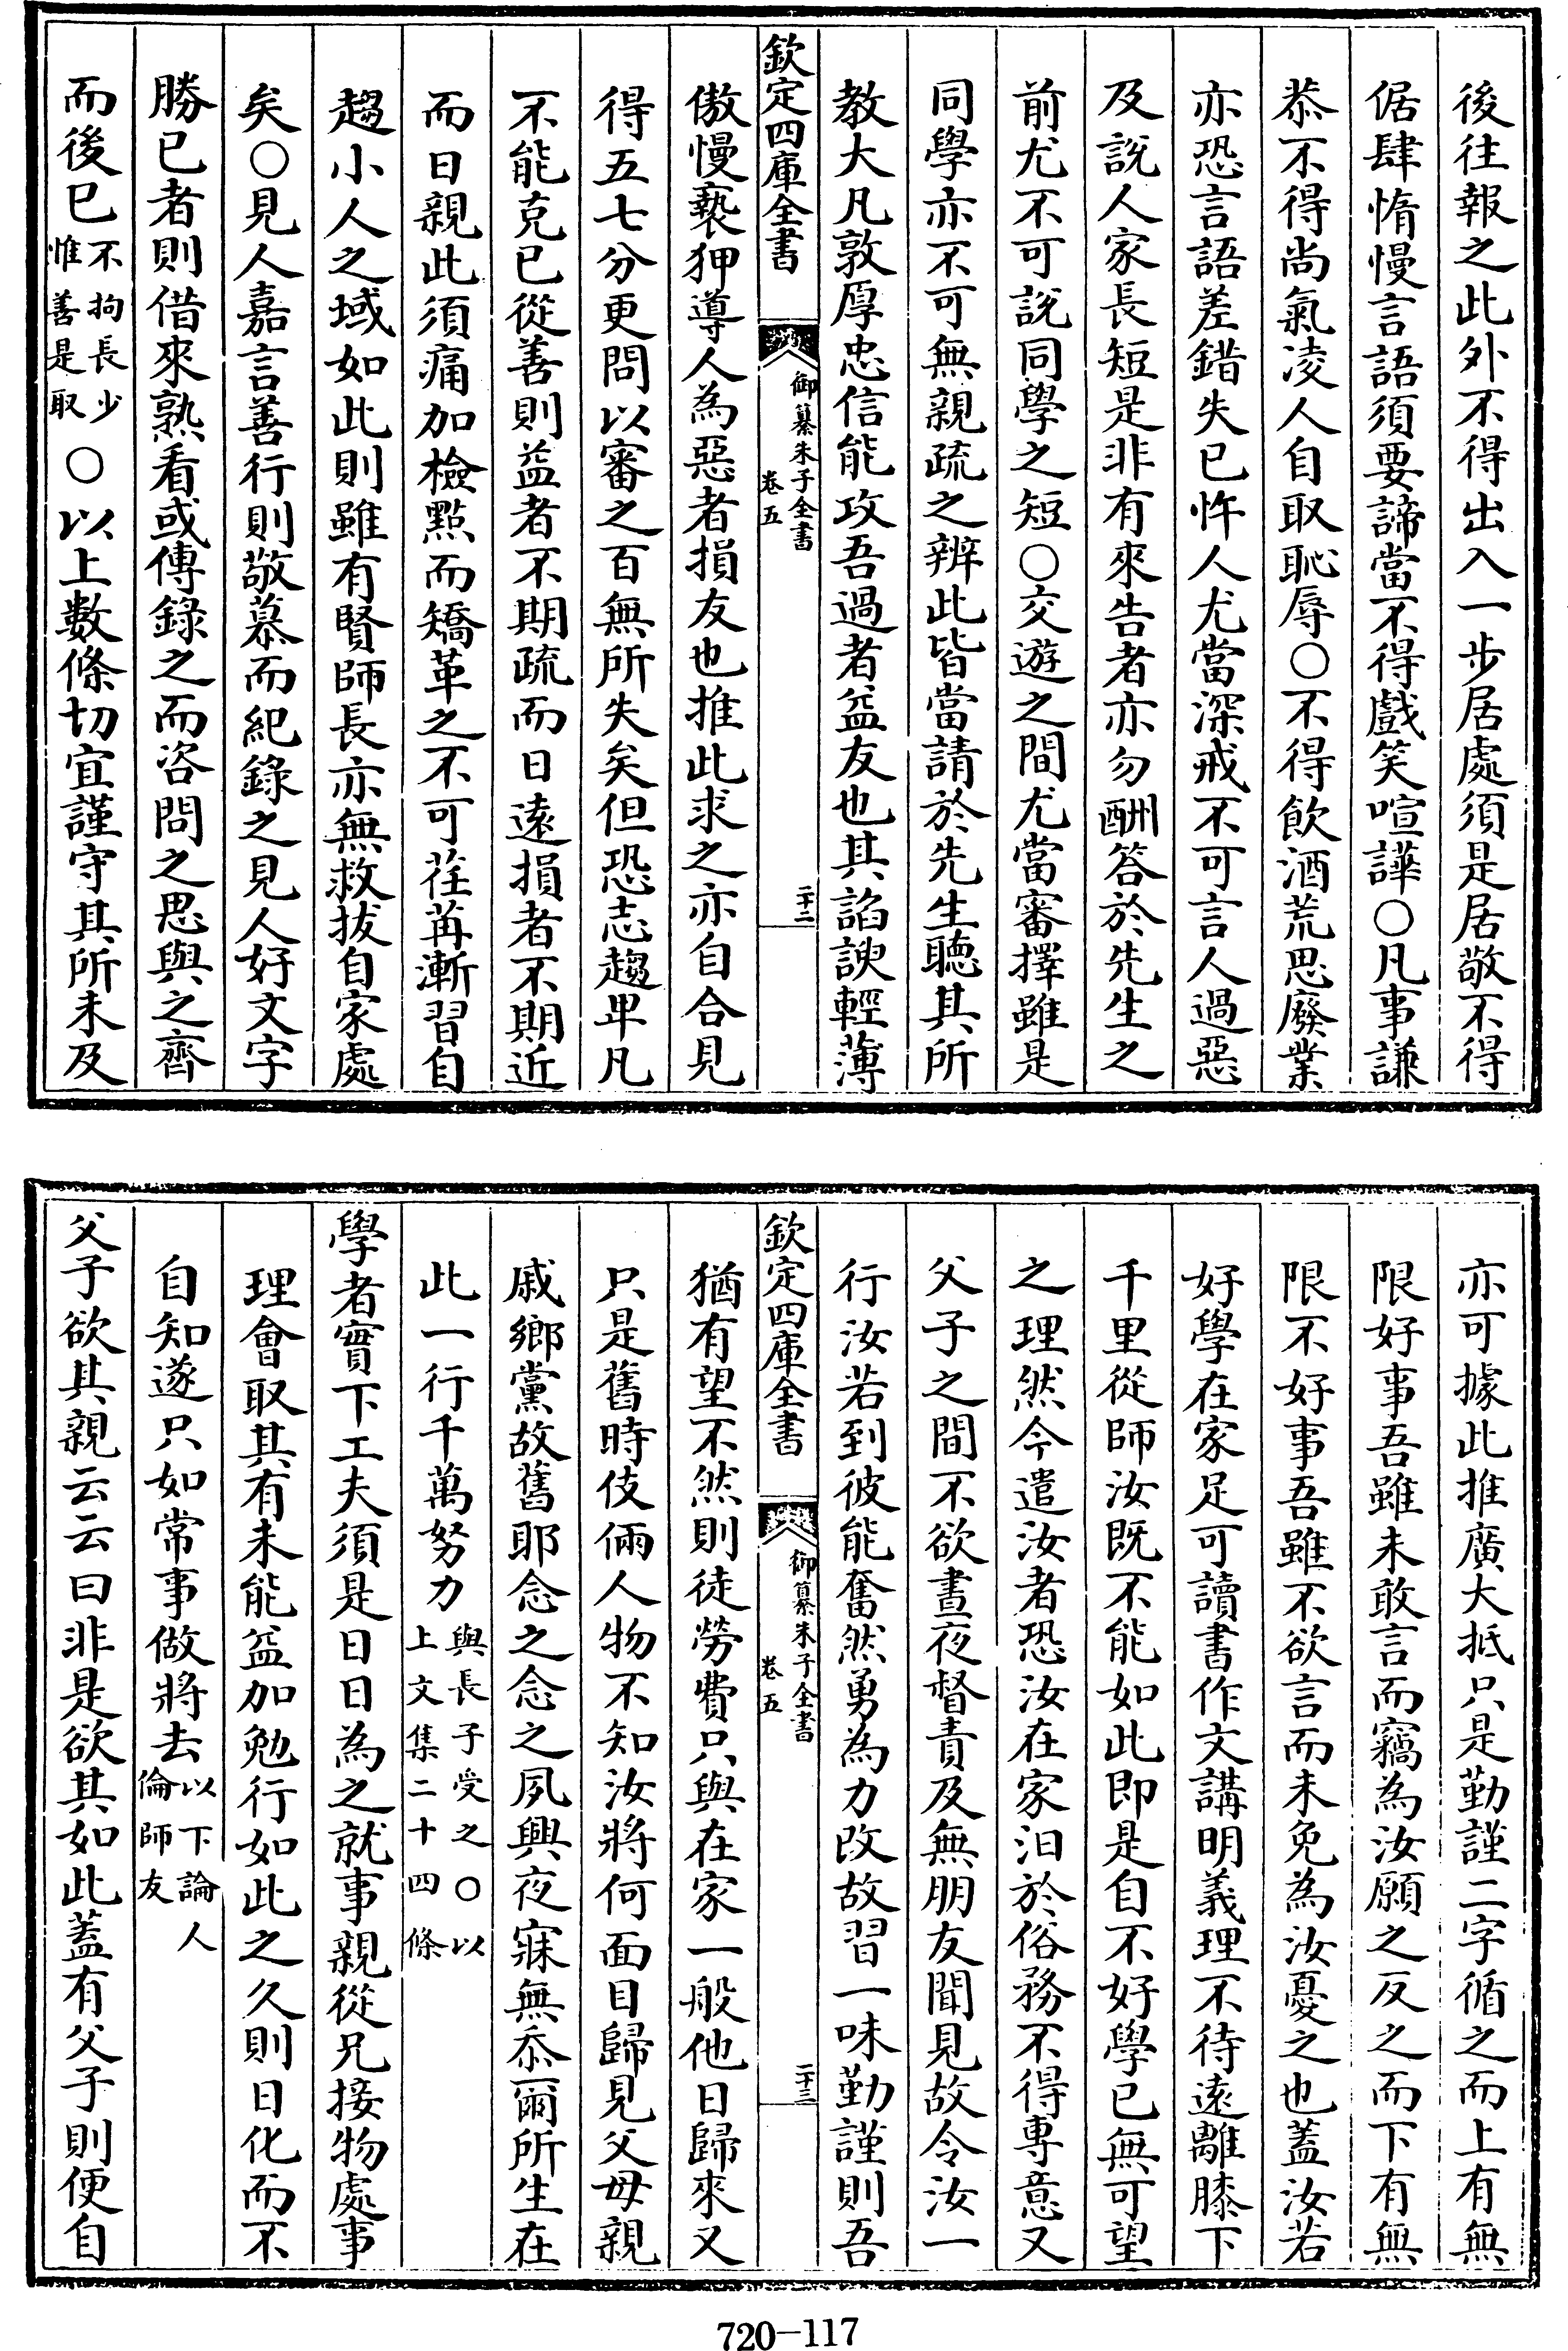 後往報之此外不得出入一步居處須是居敬不得
倨肆惰慢言語須要諦當不得戲笑喧譁○凡事謙
恭不得尚氣凌人自取恥辱○不得飲酒荒思廢業
亦恐言語差錯失已忤人尤當深戒不可言人過惡
及說人家長短是非有來告者亦勿酬答於先生之
前尤不可說同學之短○交遊之間尤當審擇雖是
同學亦不可無親疏之辨此皆當請於先生聽其所
教大凡敦厚忠信能攻吾過者益友也其諂諛輕薄
欽定四庫全書
御纂朱子全書
卷五
二十二
傲慢褻狎導人為惡者損友也推此求之亦自合見
得五七分更問以審之百無所失矣但恐志趨卑凡
不能克已從善則益者不期疏而日遠損者不期近
而日親此須痛加檢㸃而矯革之不可荏苒漸習自
趨小人之域如此則雖有賢師長亦無救拔自家處
矣○見人嘉言善行則敬慕而紀錄之見人好文字
勝已者則借來熟看或傳錄之而咨問之思與之齊
而後已不拘長少惟善是取○以上數條切宜謹守其所未及
亦可據此推廣大抵只是勤謹二字循之而上有無
限好事吾雖未敢言而竊為汝願之反之而下有無
限不好事吾雖不欲言而未免為汝憂之也蓋汝若
好學在家足可讀書作文講明義理不待遠離膝下
千里從師汝既不能如此即是自不好學已無可望
之理然今遣汝者恐汝在家汨於俗務不得專意又
父子之間不欲晝夜督責及無朋友聞見故令汝一
行汝若到彼能奮然勇為力改故習一味勤謹則吾
欽定四庫全書
御纂朱子全書
卷五
二十三
猶有望不然則徒勞費只與在家一般他日歸來又
只是舊時伎倆人物不知汝將何面目歸見父母親
戚鄉黨故舊耶念之念之夙興夜寐無忝爾所生在
此一行千萬努力與長子受之○以上文集二十四條
學者實下工夫須是日日為之就事親從兄接物處事
理會取其有未能益加勉行如此之久則日化而不
自知遂只如常事做將去以下論人倫師友
父子欲其親云云曰非是欲其如此蓋有父子則便自
720-117